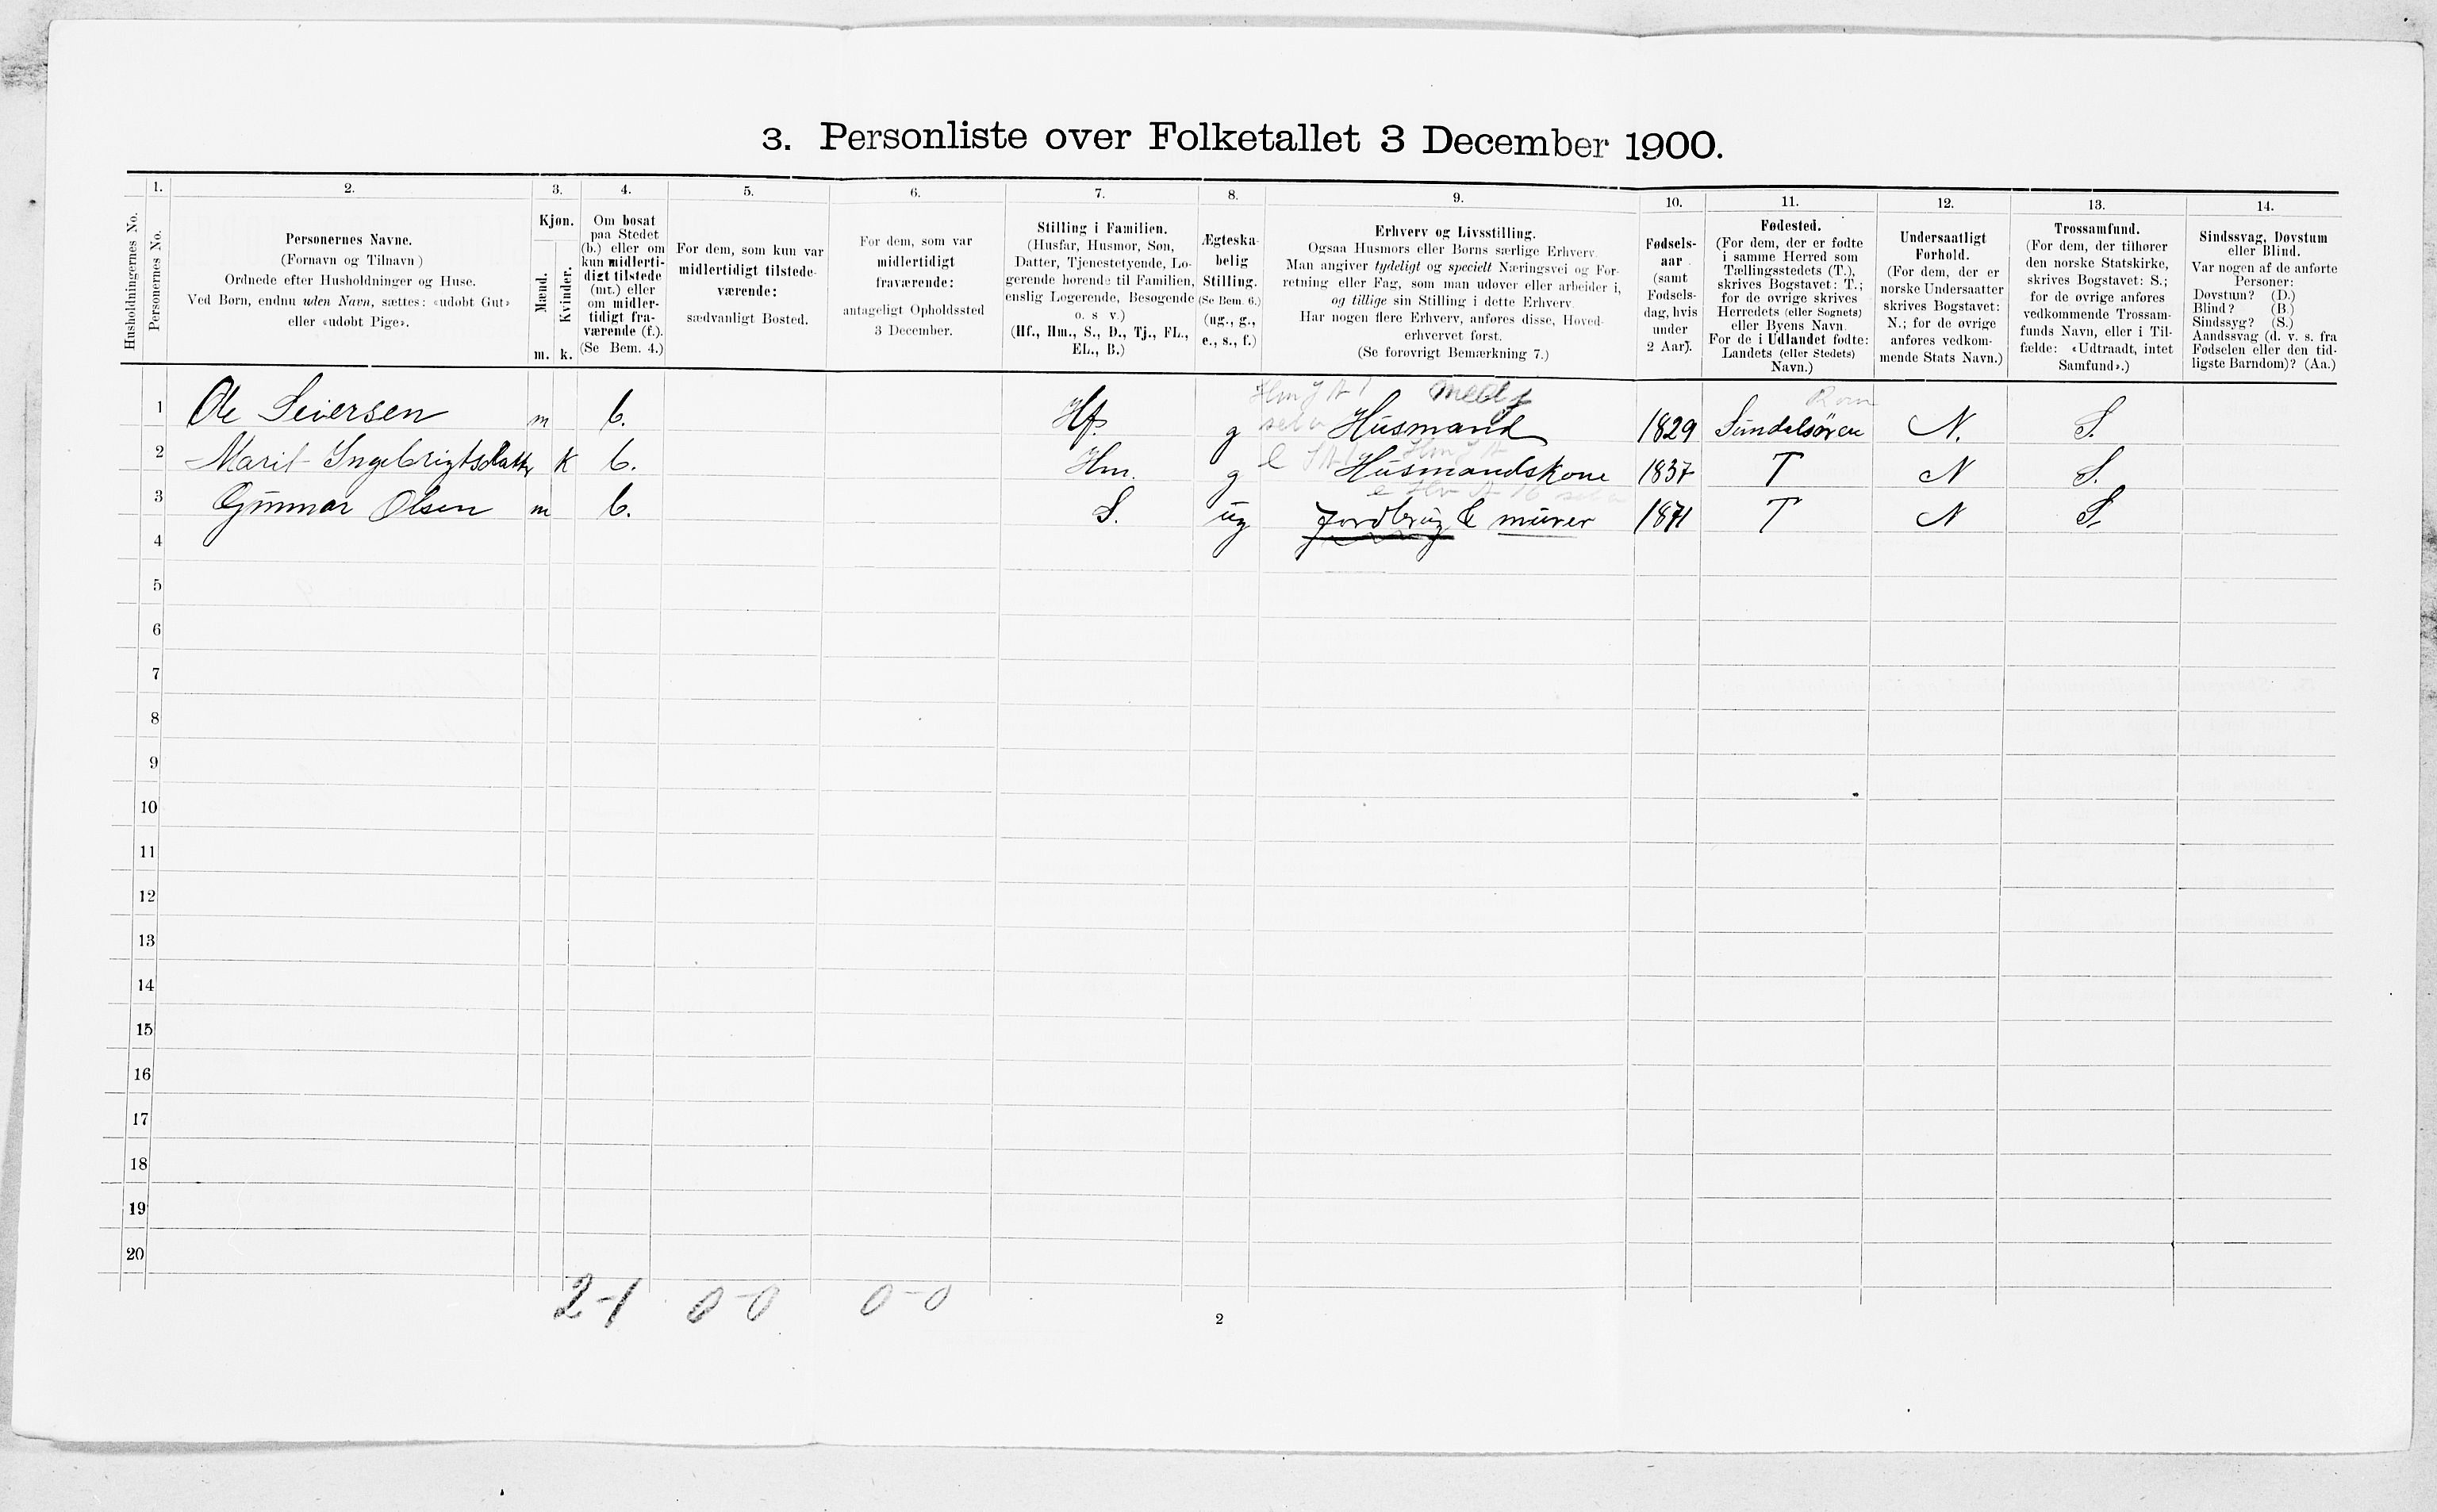 3. Personliste over Folketallet 3 December 1900.
Husholdningernes No.
1.
Personernes No.
2.
Personernes Navne.
(Fornavn og Tilnavn)
Ordnede efter Husholdninger og Huse.
Ved Børn, endnu uden Navn, sættes: «udøbt Gut»
eller «udøbt Pige».
3.
Kjøn.
Mænd.
Kvinder.
m. k.
4.
Om bosat
paa Stedet
(b.) eller om
kun midlerti-
digt tilstede
(mt.) eller
om midler-
tidigt fra-
værende (f.).
(Se Bem. 4.)
5.
For dem, som kun var
midlertidigt tilstede-
værende:
sædvanligt Bosted.
6.
For dem, som var
midlertidigt
fraværende:
antageligt Opholdssted
3 December.
7.
Stilling i Familien.
(Husfar, Husmor, Søn,
Datter, Tjenestetyende, Lo-
gerende hørende til Familien,
enslig Logerende, Besøgende
o. s v.)
(Hf., Hm., S., D., Tj., FL.,
EL., B.)
8.
Ægteska-
belig
Stilling.
(Se Bem. 6.)
(ug., g.,
e., s., f.)
9.
Erhverv og Livsstilling.
Ogsaa Husmors eller Børns særlige Erhverv.
Man angiver tydeligt og specielt Næringsvei og For-
retning eller Fag, som man udøver eller arbeider i,
og tillige sin Stilling i dette Erhverv.
Har nogen flere Erhverv, anføres disse, Hoved-
erhvervet først.
(Se forøvrigt Bemærkning 7.)
10.
Fødsels-
aar
(samt
Fødsels-
dag, hvis
under
2 Aar).
11.
Fødested.
(For dem, der er fødte
i samme Herred som
Tællingsstedets (T.),
skrives Bogstavet: T.;
for de øvrige skrives
Herredets (eller Sognets)
eller Byens Navn.
For de i Udlandet fødte:
Landets (eller Stedets)
Navn.)
12.
Undersaatligt
Forhold.
(For dem, der er
norske Undersaatter
skrives Bogstavet:
N.; for de øvrige
anføres vedkom-
mende Stats Navn.)
13.
Trossamfund.
(For dem, der tilhører
den norske Statskirke,
skrives Bogstavet: S.;
for de øvrige anføres
vedkommende Trossam-
funds Navn, eller i Til-
fælde: «Udtraadt, intet
Samfund».)
14.
Sindssvag, Døvstum
eller Blind.
Var nogen af de anførte
Personer:
Døvstum? (D.)
Blind? (B.)
Sindssyg? (S.)
Aandssvag (d. v. s. fra
Fødselen eller den tid-
ligste Barndom)? (Aa.)
1 Ole Seversen m b. Hf. g Husmand 1829 Sundalsören N. S.
2 Marit Ingebrigtsdatter K b. Hm. g Husmandskone 1837 T N S.
3 Gunnar Olsen m b. S. ug Jordbrug & murer 1871 T N S.
4
5
6
7
8
9
10
11
12
13
14
15
16
17
18
19
20
2-1 0-0 0-0
2